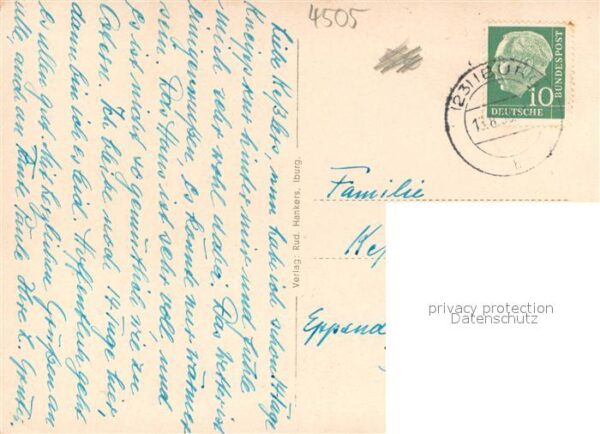 4505
Liebe Keßlers nun habe ich schon 14 Tage
Kneipp kur hinter mir und fühle
mich sehr wohl dabei. Das Wetter ist
einigermaßen, es könnte nur wärmer
sein. Das Haus ist sehr voll, und
es ist nicht so gemütlich wie zu
Ostern. Ich bleibe noch 14 Tage hier,
dann bin ich es leid. Hoffentlich geht
es allen gut. Mit herzlichen Grüßen an
alle, auch an Tante Paula Ihre L.
Verlag: Rud. Hankers, Iburg.
10
DEUTSCHE
BUNDESPOST
(23) IBURG
13.8.
b
Familie
Ke
Eppend
privacy protection
Datenschutz